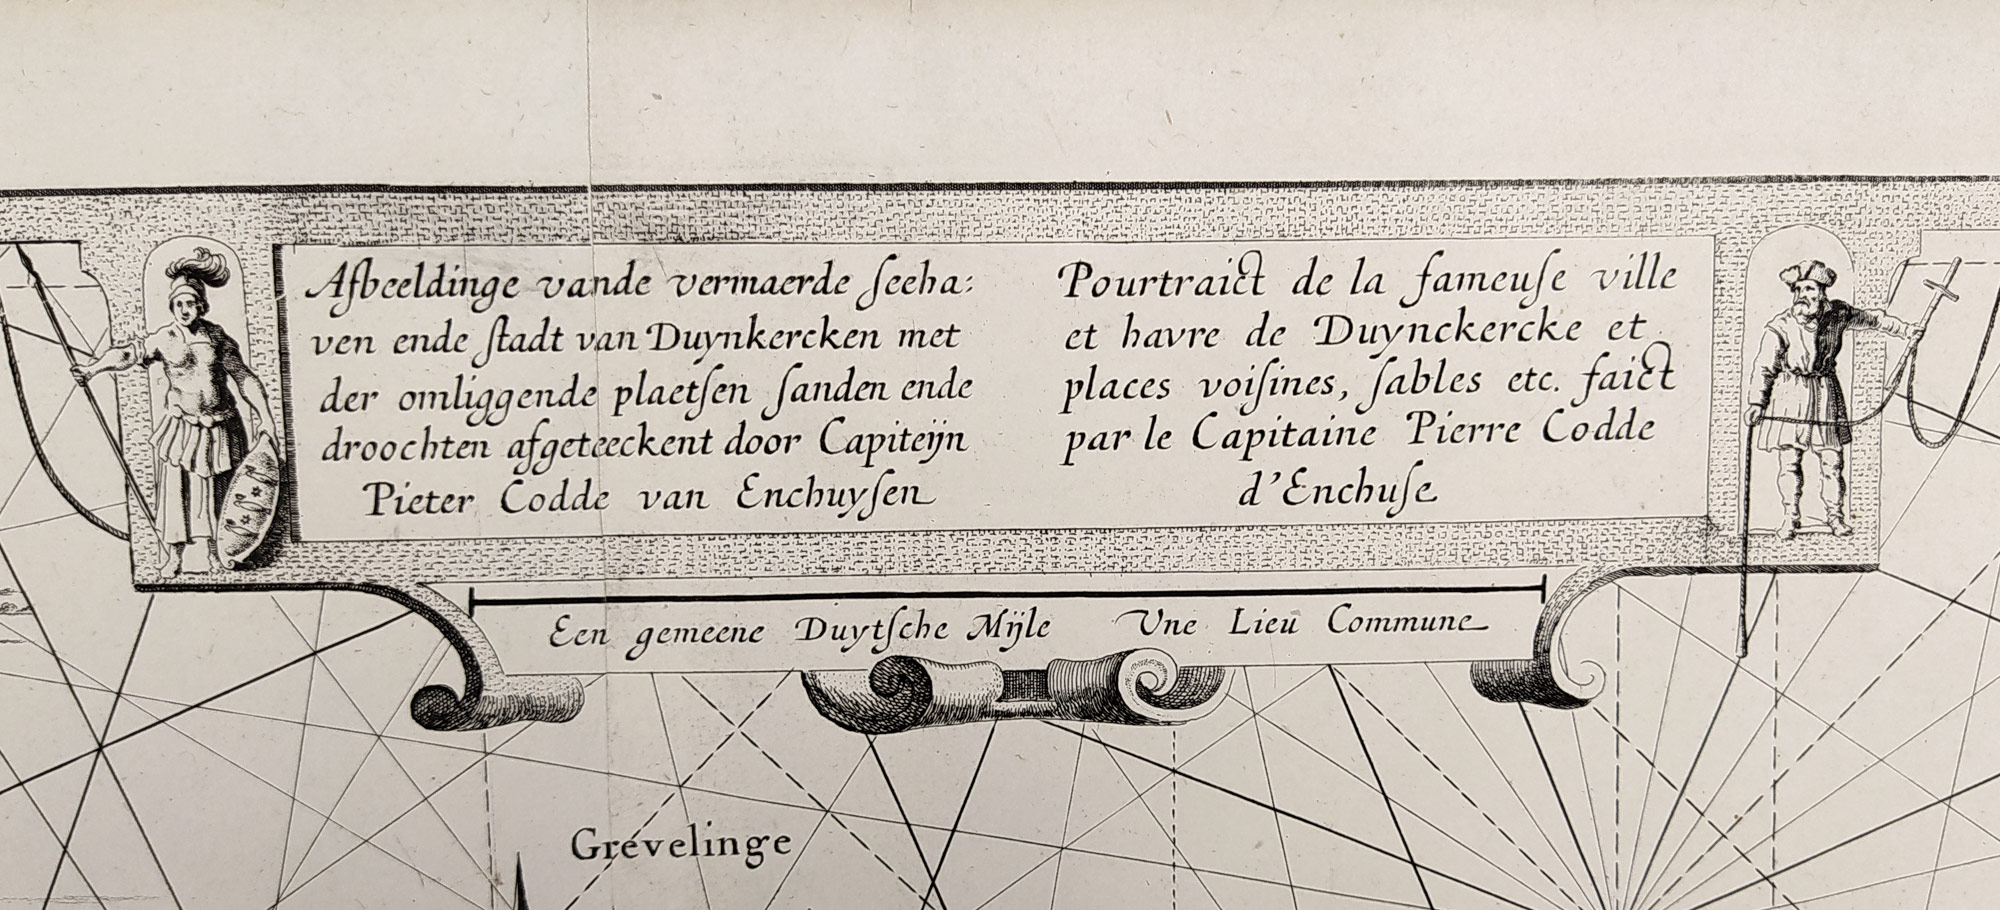 Afbeeldinge vande vermaerde ſeeha:
ven ende ſtadt van Duynkercken met
der omliggende plaetſen ſanden ende
droochten afgeteeckent door Capiteijn
Pieter Codde van Enchuyſen
Pourtraict de la fameuſe ville
et havre de Duynckercke et
places voiſines, ſables etc. faict
par le Capitaine Pierre Codde
d'Enchuſe
Een gemeene Duytſche Mÿle
Vne Lieu Commune
Grevelinge